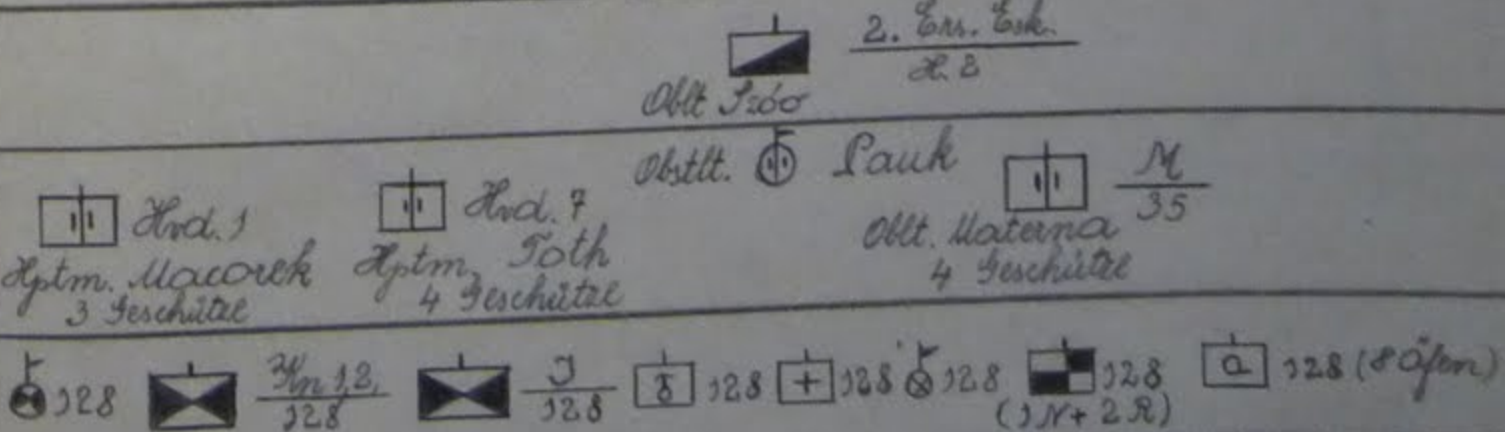 2. Ers. Esk.
H. 2
Oblt
Obstlt. Pauk
Hvd. 1
Hptm. Macorek
3 Geschütze
Hvd. 7
Hptm. Toth
4 Geschütze
M
35
Oblt. Materna
4 Geschütze
128
Kn 1,2,
128
J
128
128
128
128
128
(1N + 2R)
a 128 (8 Öfen)